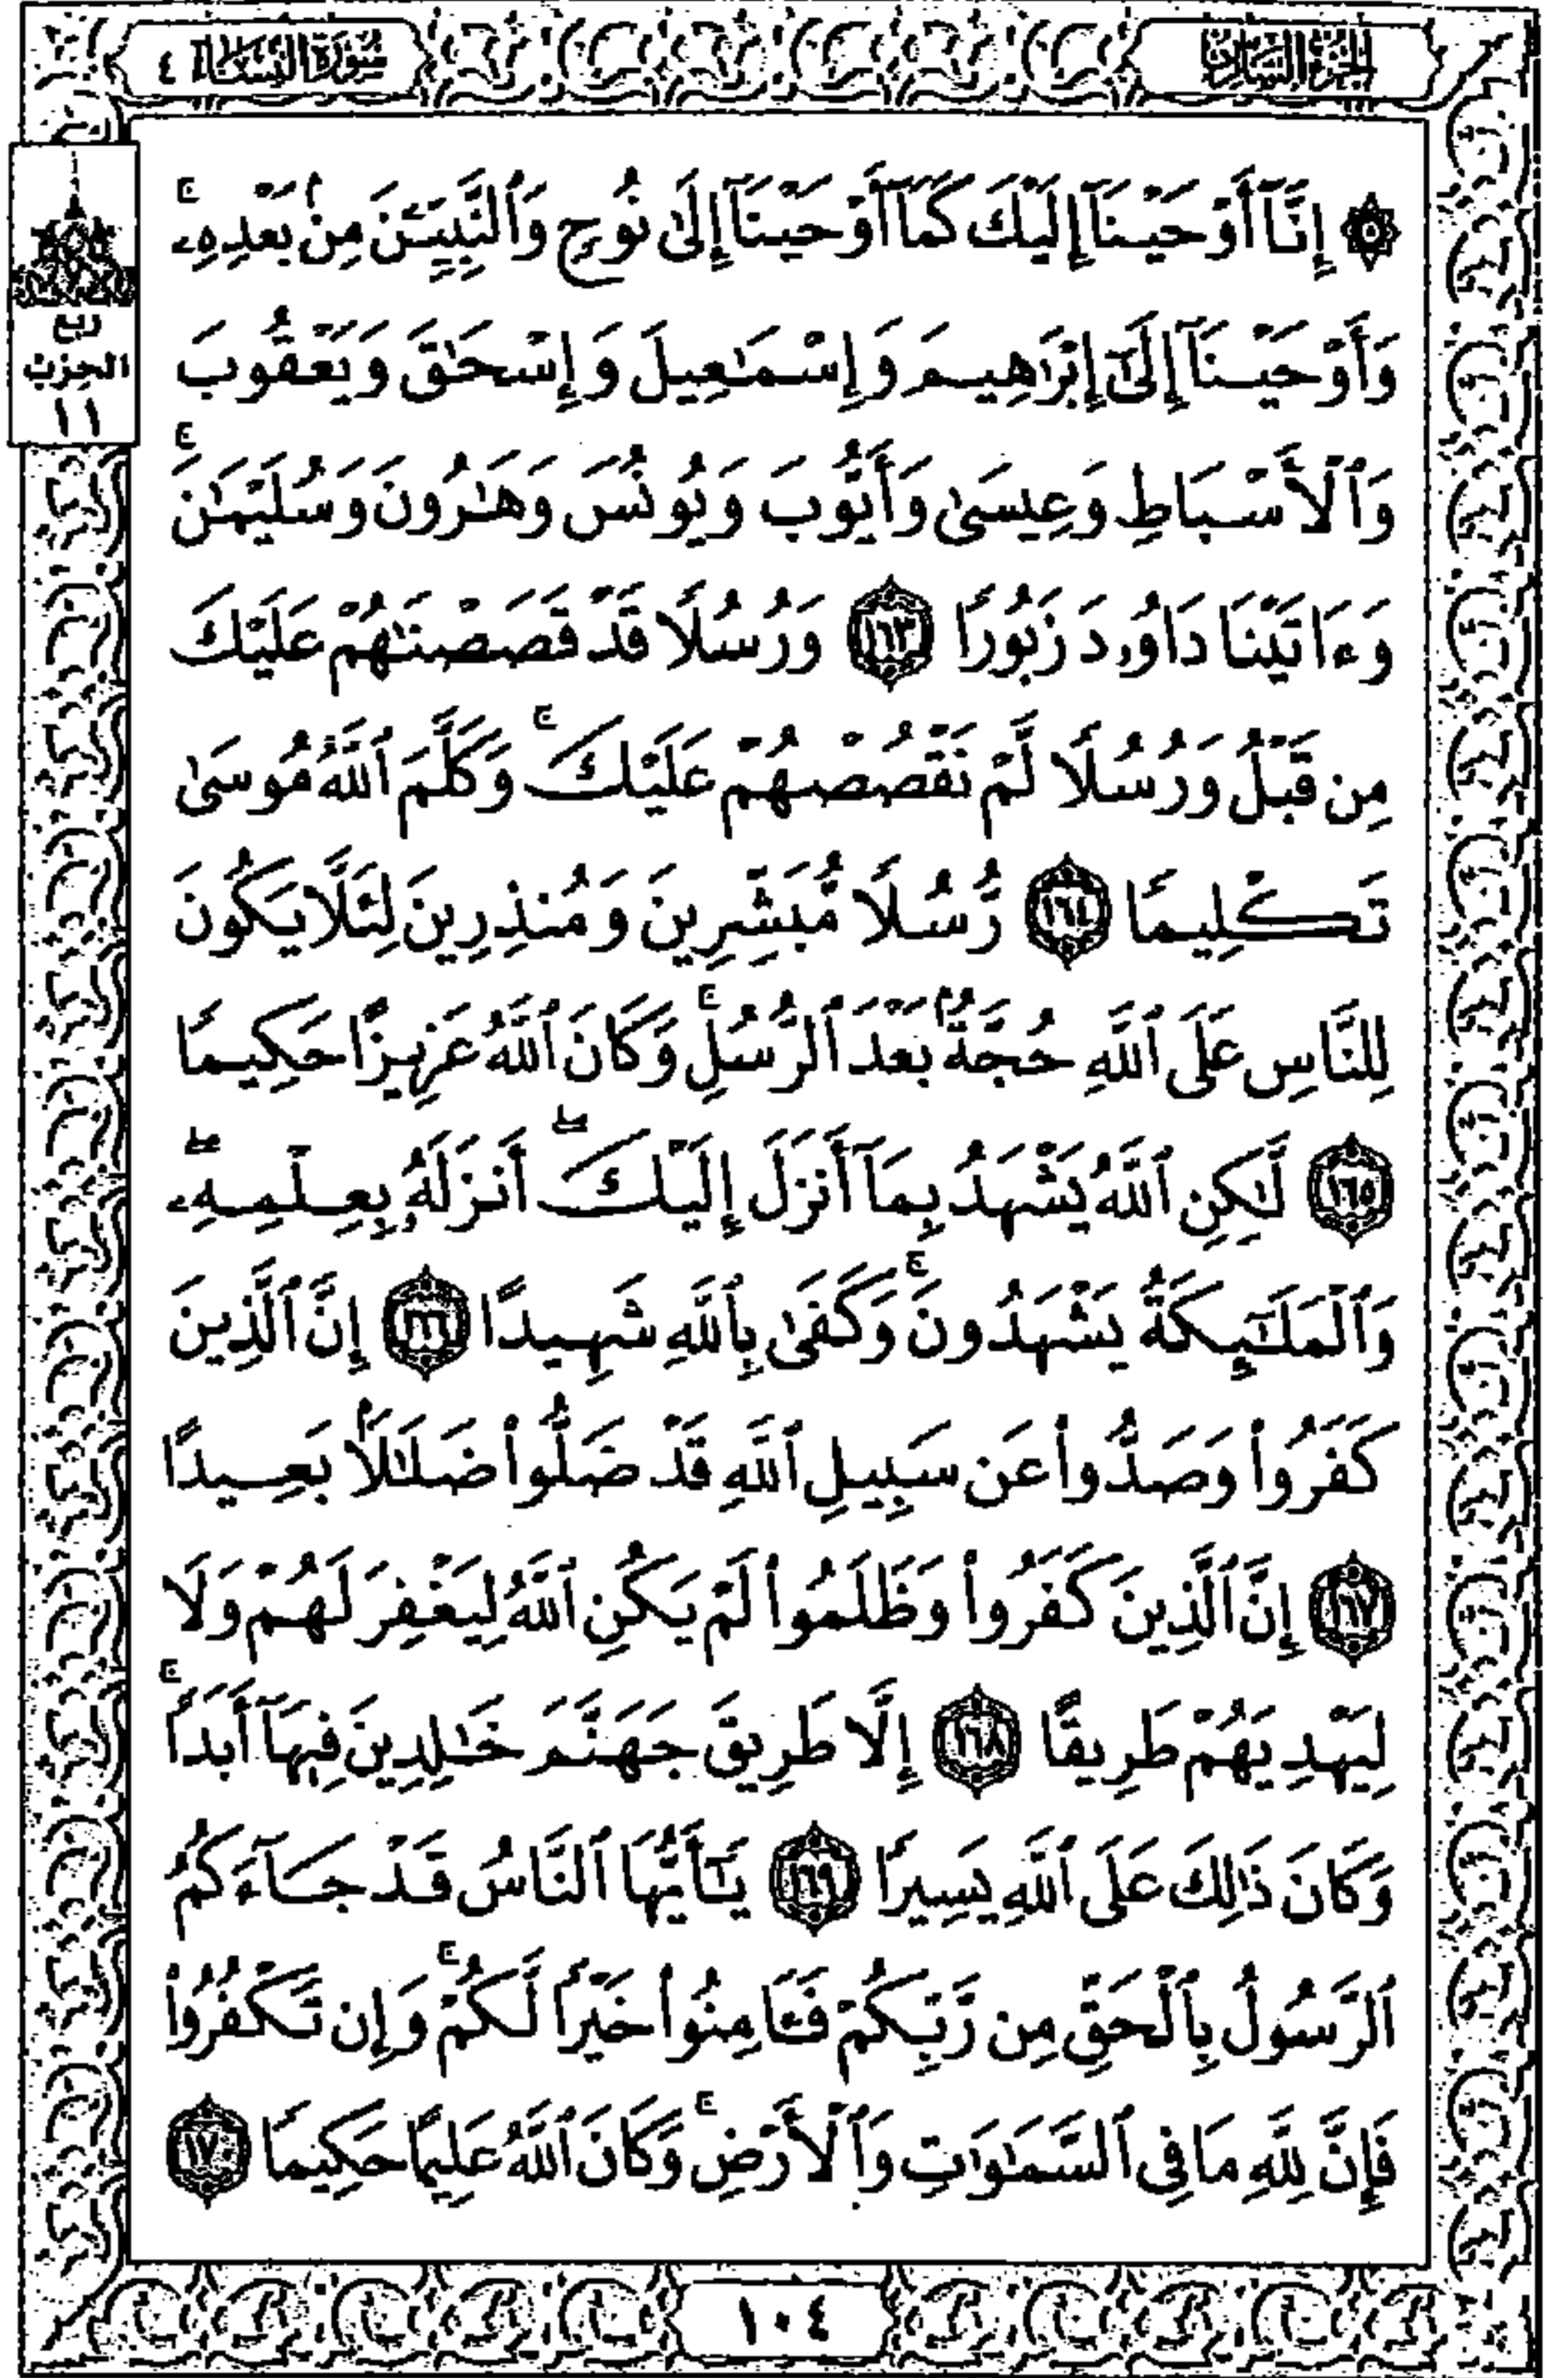 الجزء السادس
سورة النساء ٤
ربع
الحزب
١١
۞ إِنَّآ أَوۡحَيۡنَآ إِلَيۡكَ كَمَآ أَوۡحَيۡنَآ إِلَىٰ نُوحٖ وَٱلنَّبِيِّـۧنَ مِنۢ بَعۡدِهِۦۚ
وَأَوۡحَيۡنَآ إِلَىٰٓ إِبۡرَٰهِيمَ وَإِسۡمَٰعِيلَ وَإِسۡحَٰقَ وَيَعۡقُوبَ
وَٱلۡأَسۡبَاطِ وَعِيسَىٰ وَأَيُّوبَ وَيُونُسَ وَهَٰرُونَ وَسُلَيۡمَٰنَۚ
وَءَاتَيۡنَا دَاوُۥدَ زَبُورٗا ١٦٣ وَرُسُلٗا قَدۡ قَصَصۡنَٰهُمۡ عَلَيۡكَ
مِن قَبۡلُ وَرُسُلٗا لَّمۡ نَقۡصُصۡهُمۡ عَلَيۡكَۚ وَكَلَّمَ ٱللَّهُ مُوسَىٰ
تَكۡلِيمٗا ١٦٤ رُّسُلٗا مُّبَشِّرِينَ وَمُنذِرِينَ لِئَلَّا يَكُونَ
لِلنَّاسِ عَلَى ٱللَّهِ حُجَّةُۢ بَعۡدَ ٱلرُّسُلِۚ وَكَانَ ٱللَّهُ عَزِيزًا حَكِيمٗا
١٦٥ لَّٰكِنِ ٱللَّهُ يَشۡهَدُ بِمَآ أَنزَلَ إِلَيۡكَۖ أَنزَلَهُۥ بِعِلۡمِهِۦۖ
وَٱلۡمَلَٰٓئِكَةُ يَشۡهَدُونَۚ وَكَفَىٰ بِٱللَّهِ شَهِيدًا ١٦٦ إِنَّ ٱلَّذِينَ
كَفَرُواْ وَصَدُّواْ عَن سَبِيلِ ٱللَّهِ قَدۡ ضَلُّواْ ضَلَٰلَۢا بَعِيدًا
١٦٧ إِنَّ ٱلَّذِينَ كَفَرُواْ وَظَلَمُواْ لَمۡ يَكُنِ ٱللَّهُ لِيَغۡفِرَ لَهُمۡ وَلَا
لِيَهۡدِيَهُمۡ طَرِيقًا ١٦٨ إِلَّا طَرِيقَ جَهَنَّمَ خَٰلِدِينَ فِيهَآ أَبَدٗاۚ
وَكَانَ ذَٰلِكَ عَلَى ٱللَّهِ يَسِيرٗا ١٦٩ يَٰٓأَيُّهَا ٱلنَّاسُ قَدۡ جَآءَكُمُ
ٱلرَّسُولُ بِٱلۡحَقِّ مِن رَّبِّكُمۡ فَـَٔامِنُواْ خَيۡرٗا لَّكُمۡۚ وَإِن تَكۡفُرُواْ
فَإِنَّ لِلَّهِ مَا فِي ٱلسَّمَٰوَٰتِ وَٱلۡأَرۡضِۚ وَكَانَ ٱللَّهُ عَلِيمًا حَكِيمٗا ١٧٠
١٠٤